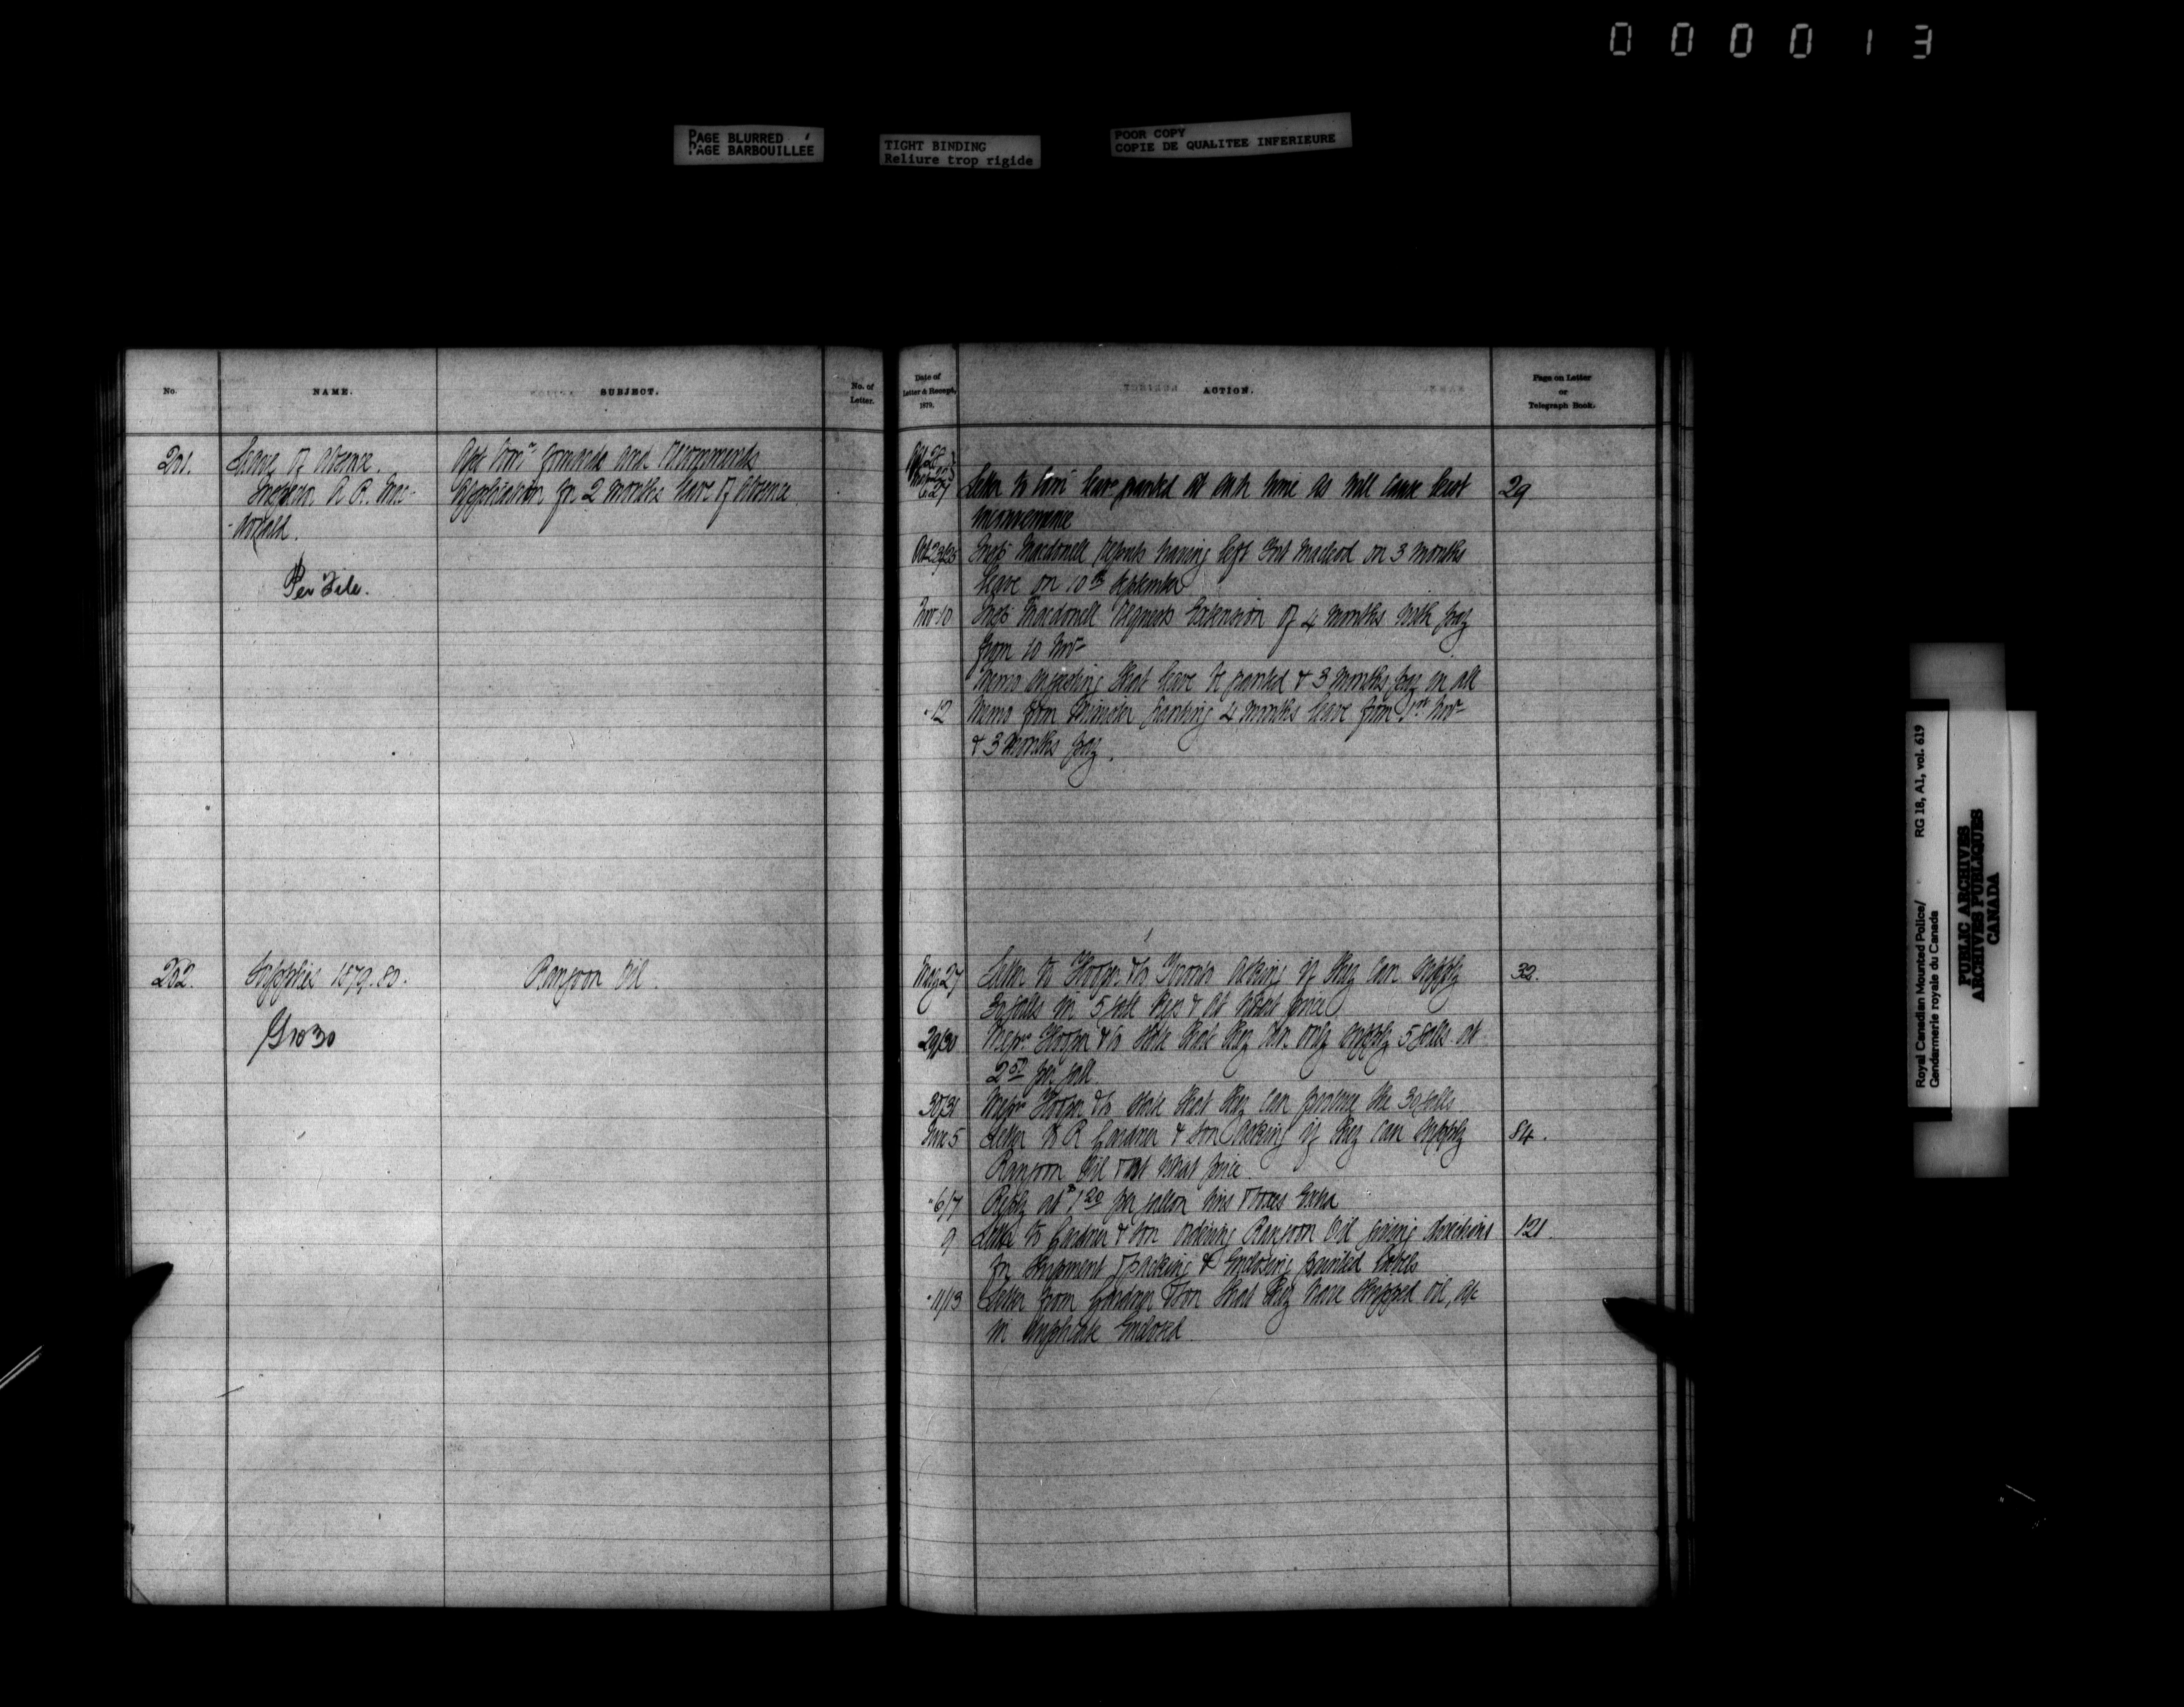 000013
PAGE BLURRED
PAGE BARBOUILLÉE
TIGHT BINDING
Reliure trop rigide
POOR COPY
COPIE DE QUALITEE INFERIEURE
No.
NAME.
SUBJECT.
No. of Letter.
201.
Leave of absence.
Inspector A. R. Mac-
-donell.
Per File.
Asst Comr forwards and recommends
application for 2 months leave of absence
202.
Supplies 1879.80.
Rangoon Oil.
Date of
Letter & Receipt,
1879.
ACTION.
Page on Letter
or
Telegraph Book.
27 Letter to Comr leave granted at such time as will cause least 29
inconvenience
Oct 23/25 Insp. Macdonell reports having left Fort Macleod on 3 months
leave on 10th September
Nov 10 Insp. Macdonell requests extension of 4 months with pay
from 10 Nov-
Memo suggesting that leave be granted & 3 months pay in all
" 12 Memo from Minister granting 4 months leave from 1st Nov-
& 3 months pay.
May 27 Letter to Hooper & Co Toronto asking if they can supply 32.
30 galls in 5 gall kegs & at what price
29/30 Messrs Hooper & Co state that they can only supply 5 galls. at
2 50 per gall.
30/31 Messrs Hooper & Co state that they can procure the 30 galls
June 5 Letter to R Gardner & Son asking if they can supply 84.
Rangoon Oil & at what price.
" 6/7 Reply at $1 20 per gallon tins & boxes extra
9 Letter to Gardner & Son ordering Rangoon Oil giving directions 121.
for shipment & packing & enclosing printed labels
" 11/13 Letter from Gardner & Son that they have shipped oil, a/c
in duplicate enclosed.
Royal Canadian Mounted Police/ RG 18, A1, vol. 619
Gendarmerie royale du Canada
PUBLIC ARCHIVES
ARCHIVES PUBLIQUES
CANADA